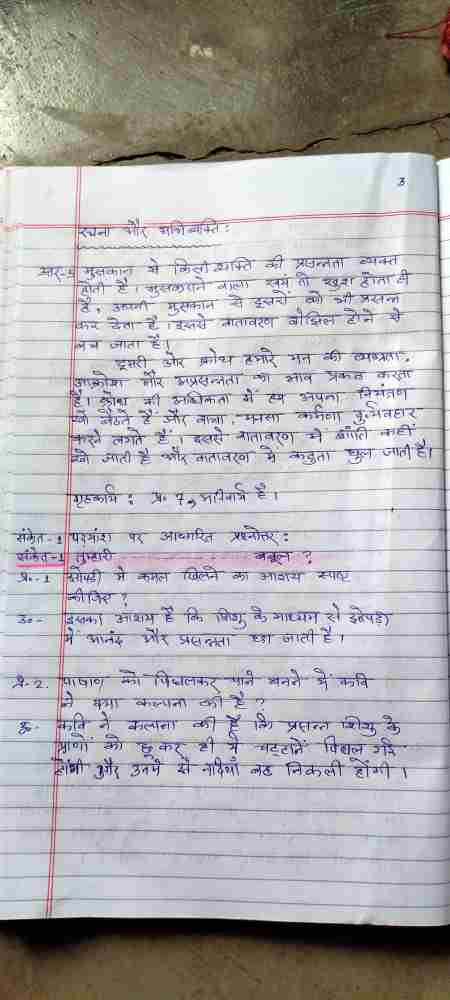 3
रचना और अभिव्यक्ति :
उत्तर-5 मुसकान से किसी व्यक्ति की प्रसन्नता व्यक्त
होती है। मुसकराने वाला स्वयं तो खुश होता ही
है, अपनी मुसकान से दूसरों को भी प्रसन्न
कर देता है। इससे वातावरण बोझिल होने से
बच जाता है।
दूसरी ओर क्रोध हमारे मन की व्यग्रता,
आक्रोश और अप्रसन्नता का भाव प्रकट करता
है। क्रोध की अधिकता में हम अपना नियंत्रण
खो बैठते हैं और वाचा, मनसा कर्मणा दुर्व्यवहार
करने लगते हैं। इससे वातावरण में शांति कहीं
खो जाती है और वातावरण में कटुता घुल जाती है।
गृहकार्य : प्र. 7, अनिवार्य है।
संकेत-1 पद्यांश पर आधारित प्रश्नोत्तर :
संकेत-1 तुम्हारी - - - - - बबूल ?
प्र.-1 झोपड़ी में कमल खिलने का आशय स्पष्ट
कीजिए ?
उ.- इसका आशय है कि शिशु के माध्यम से झोपड़ी
में आनंद और प्रसन्नता छा जाती है।
प्र.-2. पाषाण को पिघलकर पाने बनने में कवि
ने क्या कल्पना की है ?
उ.- कवि ने कल्पना की है कि प्रसन्न शिशु के
प्राणों को छूकर ही ये चट्टानें पिघल गई
होंगी और उनमें से नदियाँ बह निकली होंगी।